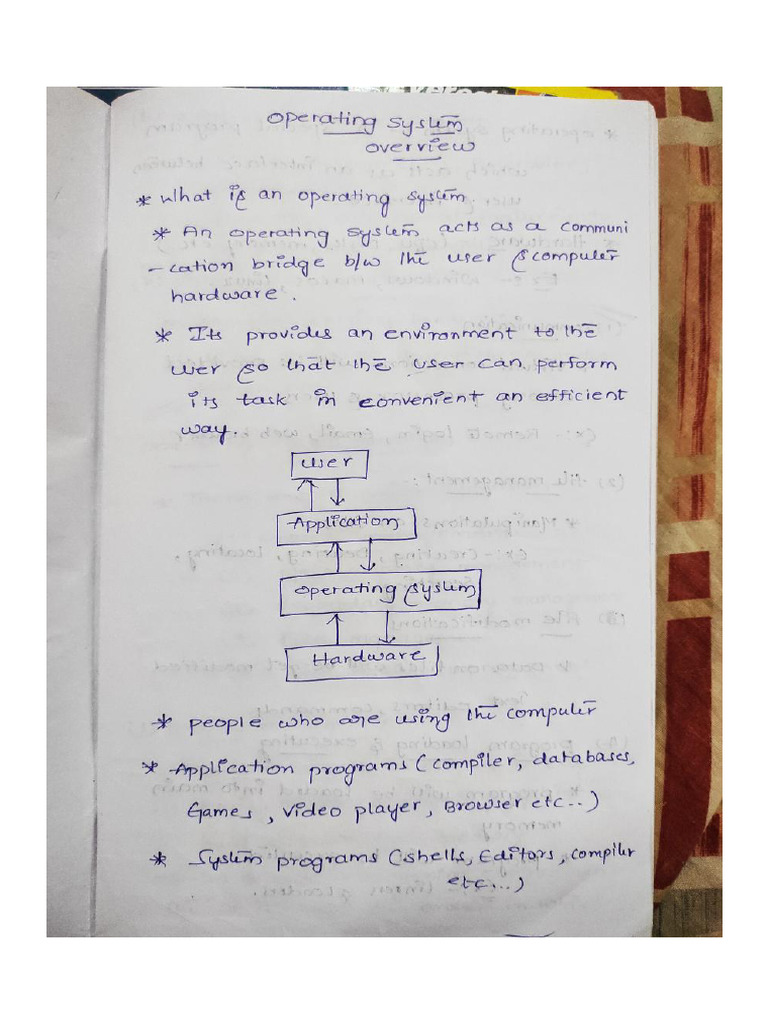 Operating System
overview
* What is an operating system.
* An operating system acts as a communi
-cation bridge b/w the user & computer
hardware.
* Its provides an environment to the
user so that the user can perform
its task in convenient an efficient
way.
User
Application
Operating System
Hardware
* people who are using the computer
* Application programs (compiler, databases,
Games, Video player, Browser etc..)
* System programs (shells, Editors, compiler
etc...)